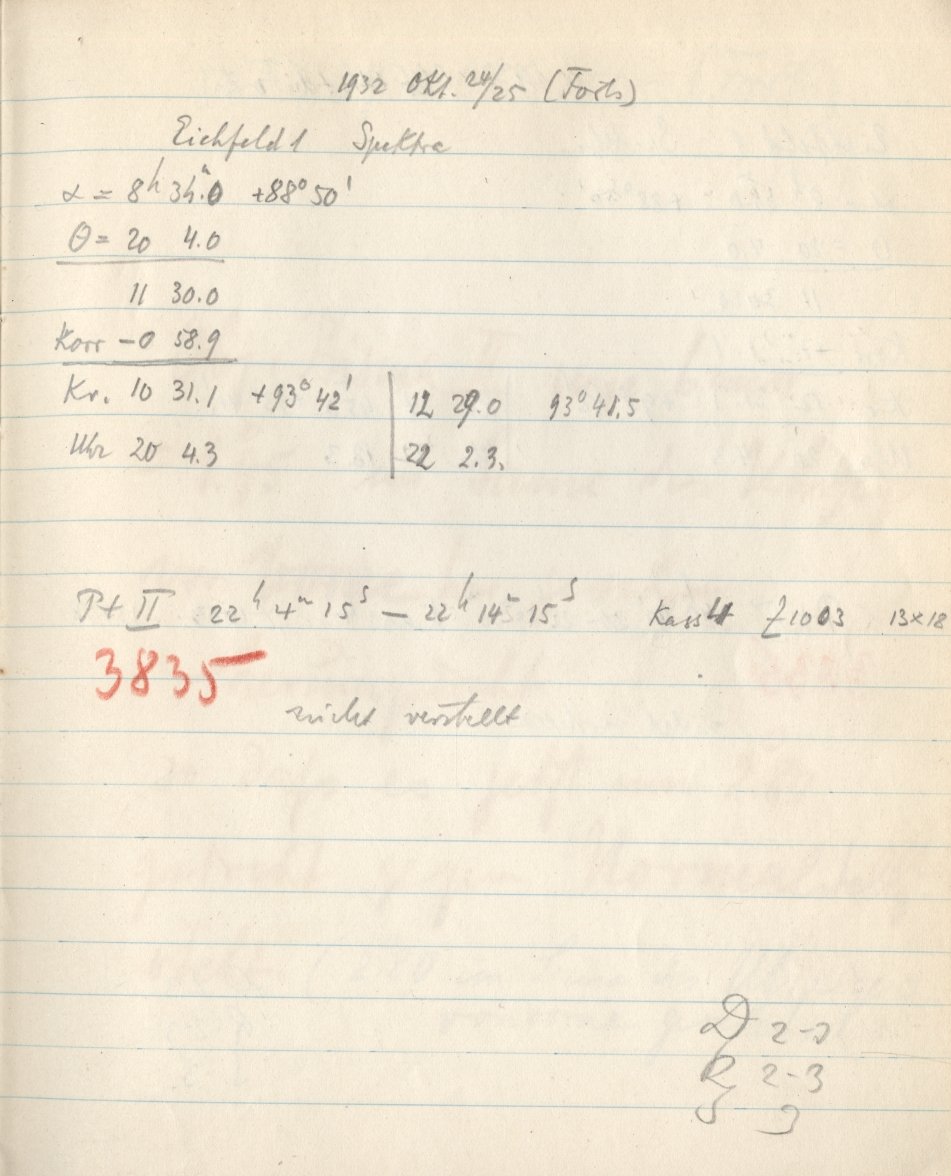 1932 Okt. 24/25 (Forts)
Eichfeld 1 Spektra
α = 8h 34m.0 +88° 50'
θ = 20 4.0
11 30.0
Korr -0 58.9
Kr. 10 31.1 +93° 42' | 12 29.0 93° 41.5
Uhr 20 4.3 | 22 2.3.
Pl II 22h 4m 15s — 22h 14m 15s Kass 4 Z 1003 13×18
3835
nicht verstellt
D 2-3
R 2-3
S 3